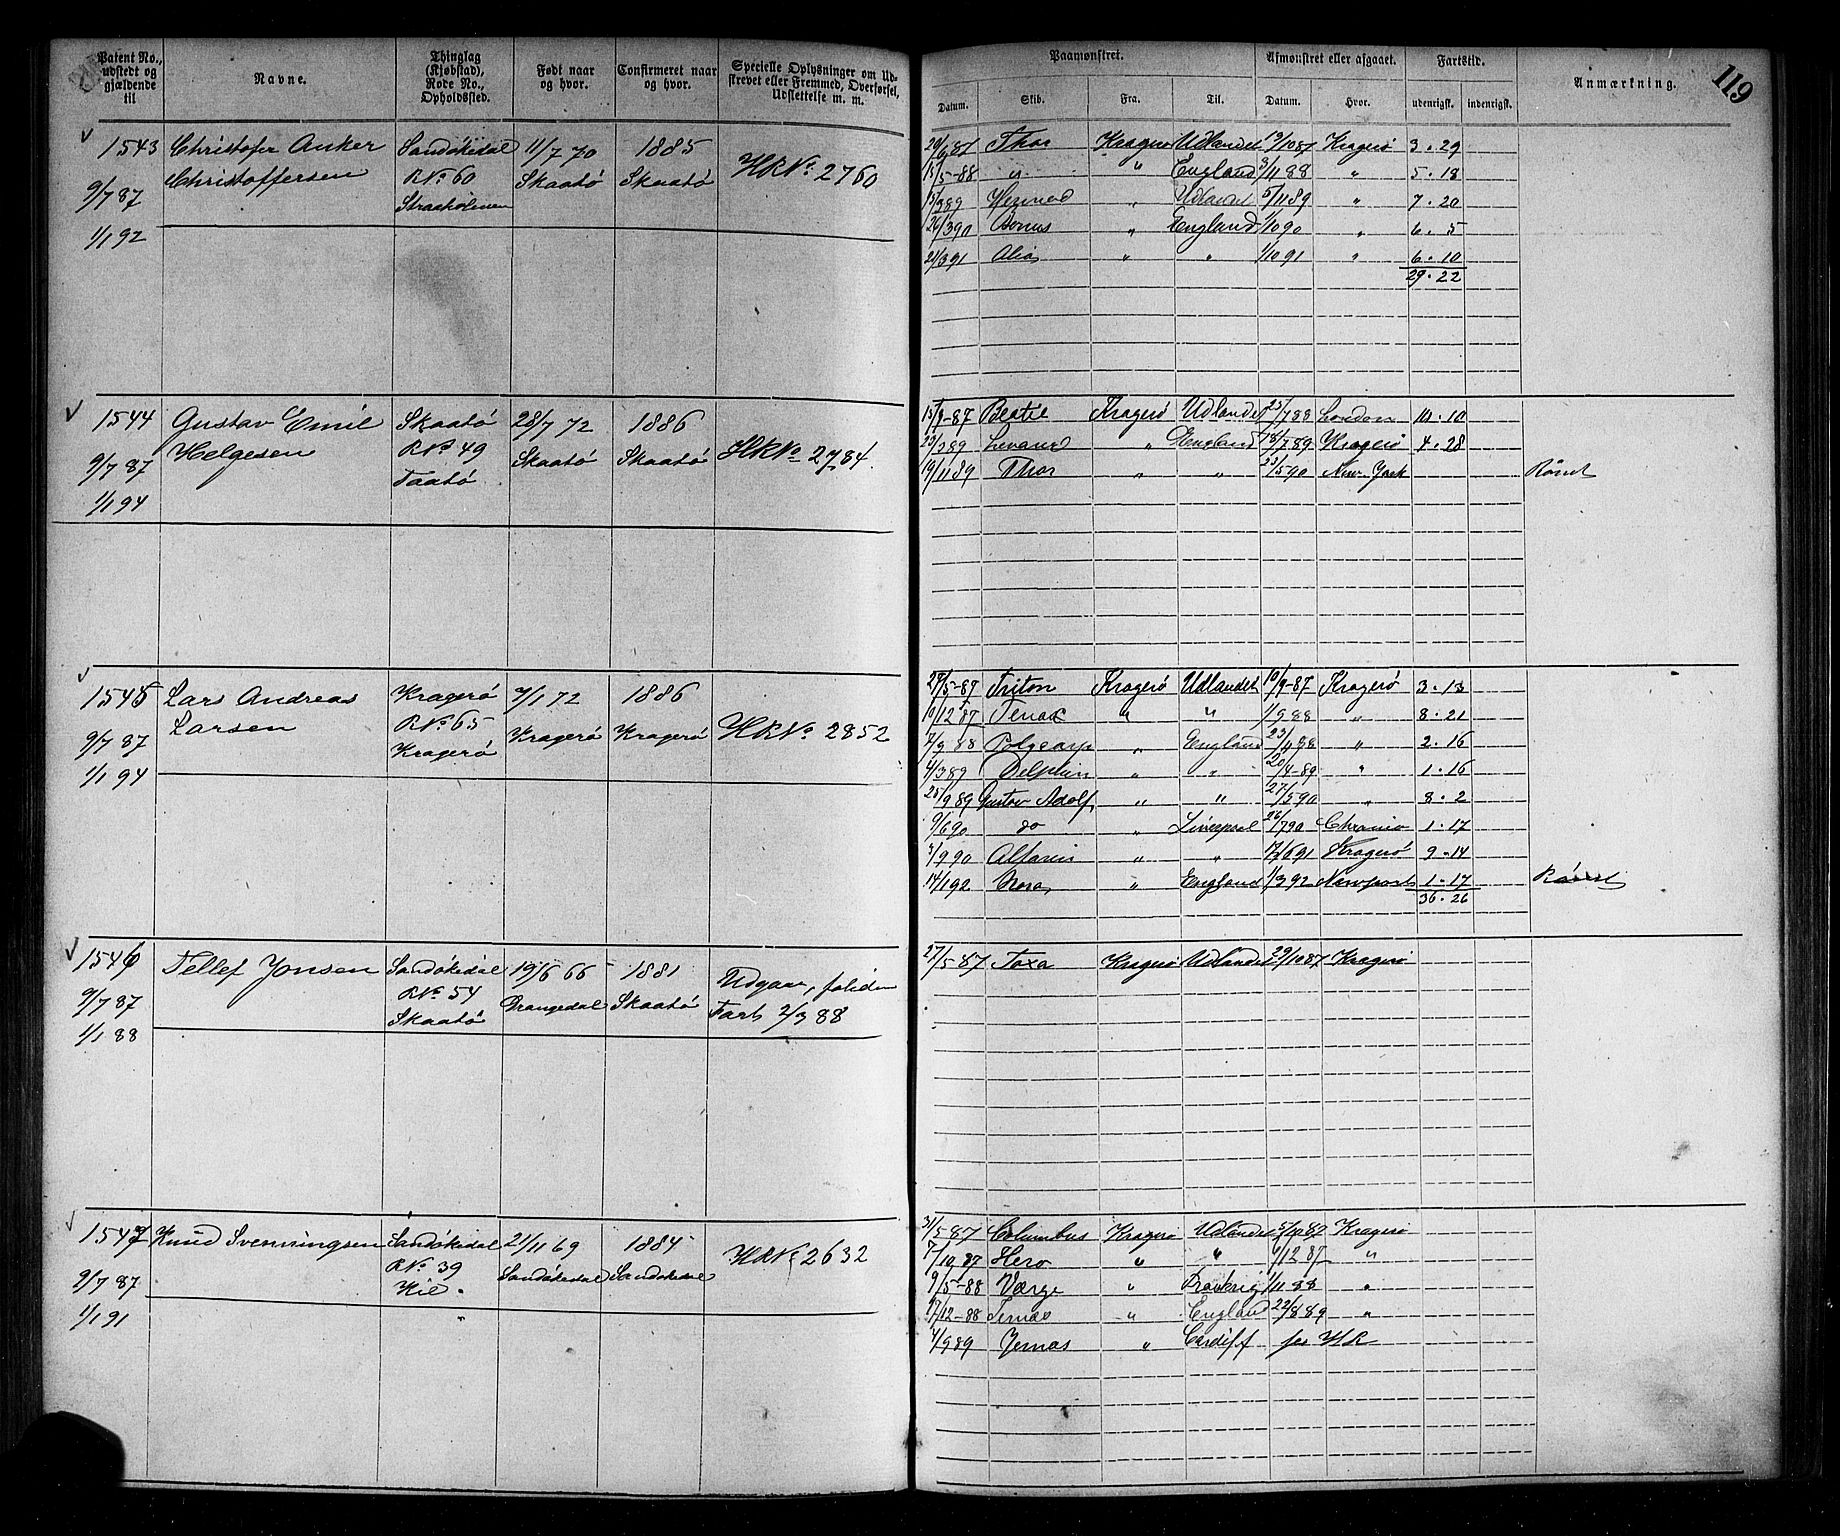 Patent No., udstedt og gjældende til | Navne. | Thinglag (Kjøbstad), Rode No., Opholdssted. | Født naar og hvor. | Confirmeret naar og hvor. | Specielle Oplysninger om Udskrevet eller Fremmed, Overførsel, Udslettelse m. m.
1543 Christofer Anker Sandökedal 11/7 70 1885 HRNo 2760
9/7 87 Christoffersen RNo 60 Skaatö Skaatö
1/1 92 Straaholmen
1544 Gustav Emil Skaatö 28/7 72 1886 HRNo 2784.
9/7 87 Helgesen RNo 49 Skaatö Skaatö
1/1 94 Taatö
1545 Lars Andreas Kragerö 7/1 72 1886 HRNo 2852
9/7 87 Larsen RNo 65 Kragerö Kragerö
1/1 94 Kragerö
1546 Tellef Jonsen Sandökedal 19/6 66 1881 Udgaar,
9/7 87 RNo 54 Drangedal Skaatö Fart 2/3 88
1/1 88 Skaatö
1547 Knud Svenningsen Sandökedal 21/11 69 1884 HRNo 2632
9/7 87 RNo 39 Sandökedal Sandökedal
1/1 91 Kil.
119
Paamønstret. | Afmønstret eller afgaaet. | Fartstid. | Anmærkning.
Datum. | Skib. | Fra. | Til. | Datum. | Hvor. | udenrigsk. | indenrigsk.
Thor Kragerö Udlandet Kragerö 3 . 29
" " England 3/11 88 " 5 . 18
" Udlandet 5/11 89 " 7 . 20
26/3 90 " England 1/10 90 " 6 . 5
21/3 91 " " 1/10 91 " 6 . 10
29 . 22
Kragerö Udlandet 25/7 88 London 10 . 10
" England 18/7 89 Kragerö 4 . 28
19/11 89 Thor " " 23/5 90 New-York Römt
27/5-87 Triton Kragerö Udlandet 10/9-87 Kragerö 3 . 13
10/12 87 Tenax " " 1/9 88 " 8 . 21
Polycarp " England " 2 . 16
4/3 89 Delphin " " 20/4-89 " 1 . 16
25/9 89 Gustav Adolf " " 27/5 90 " 8 . 2
9/6 90 do " Liverpool 26/7 90 Chrania 1 . 17
3/9 90 " " Kragerö 9 . 14
14/1 92 Nora " England 1/3 92 Newport 1 . 17 Römt
36 . 26
27/5-87 Toxa Kragerö Udlandet 29/10 87 Kragerö
31/5-87 Columbus Kragerö Udlandet 5/10 87 Kragerö
7/10 87 Hero " " 9/12 87 "
9/5-88 Værge " 1/11 88 "
17/12-88 " England 22/8 89 "
4/9 89 " Cardiff HR